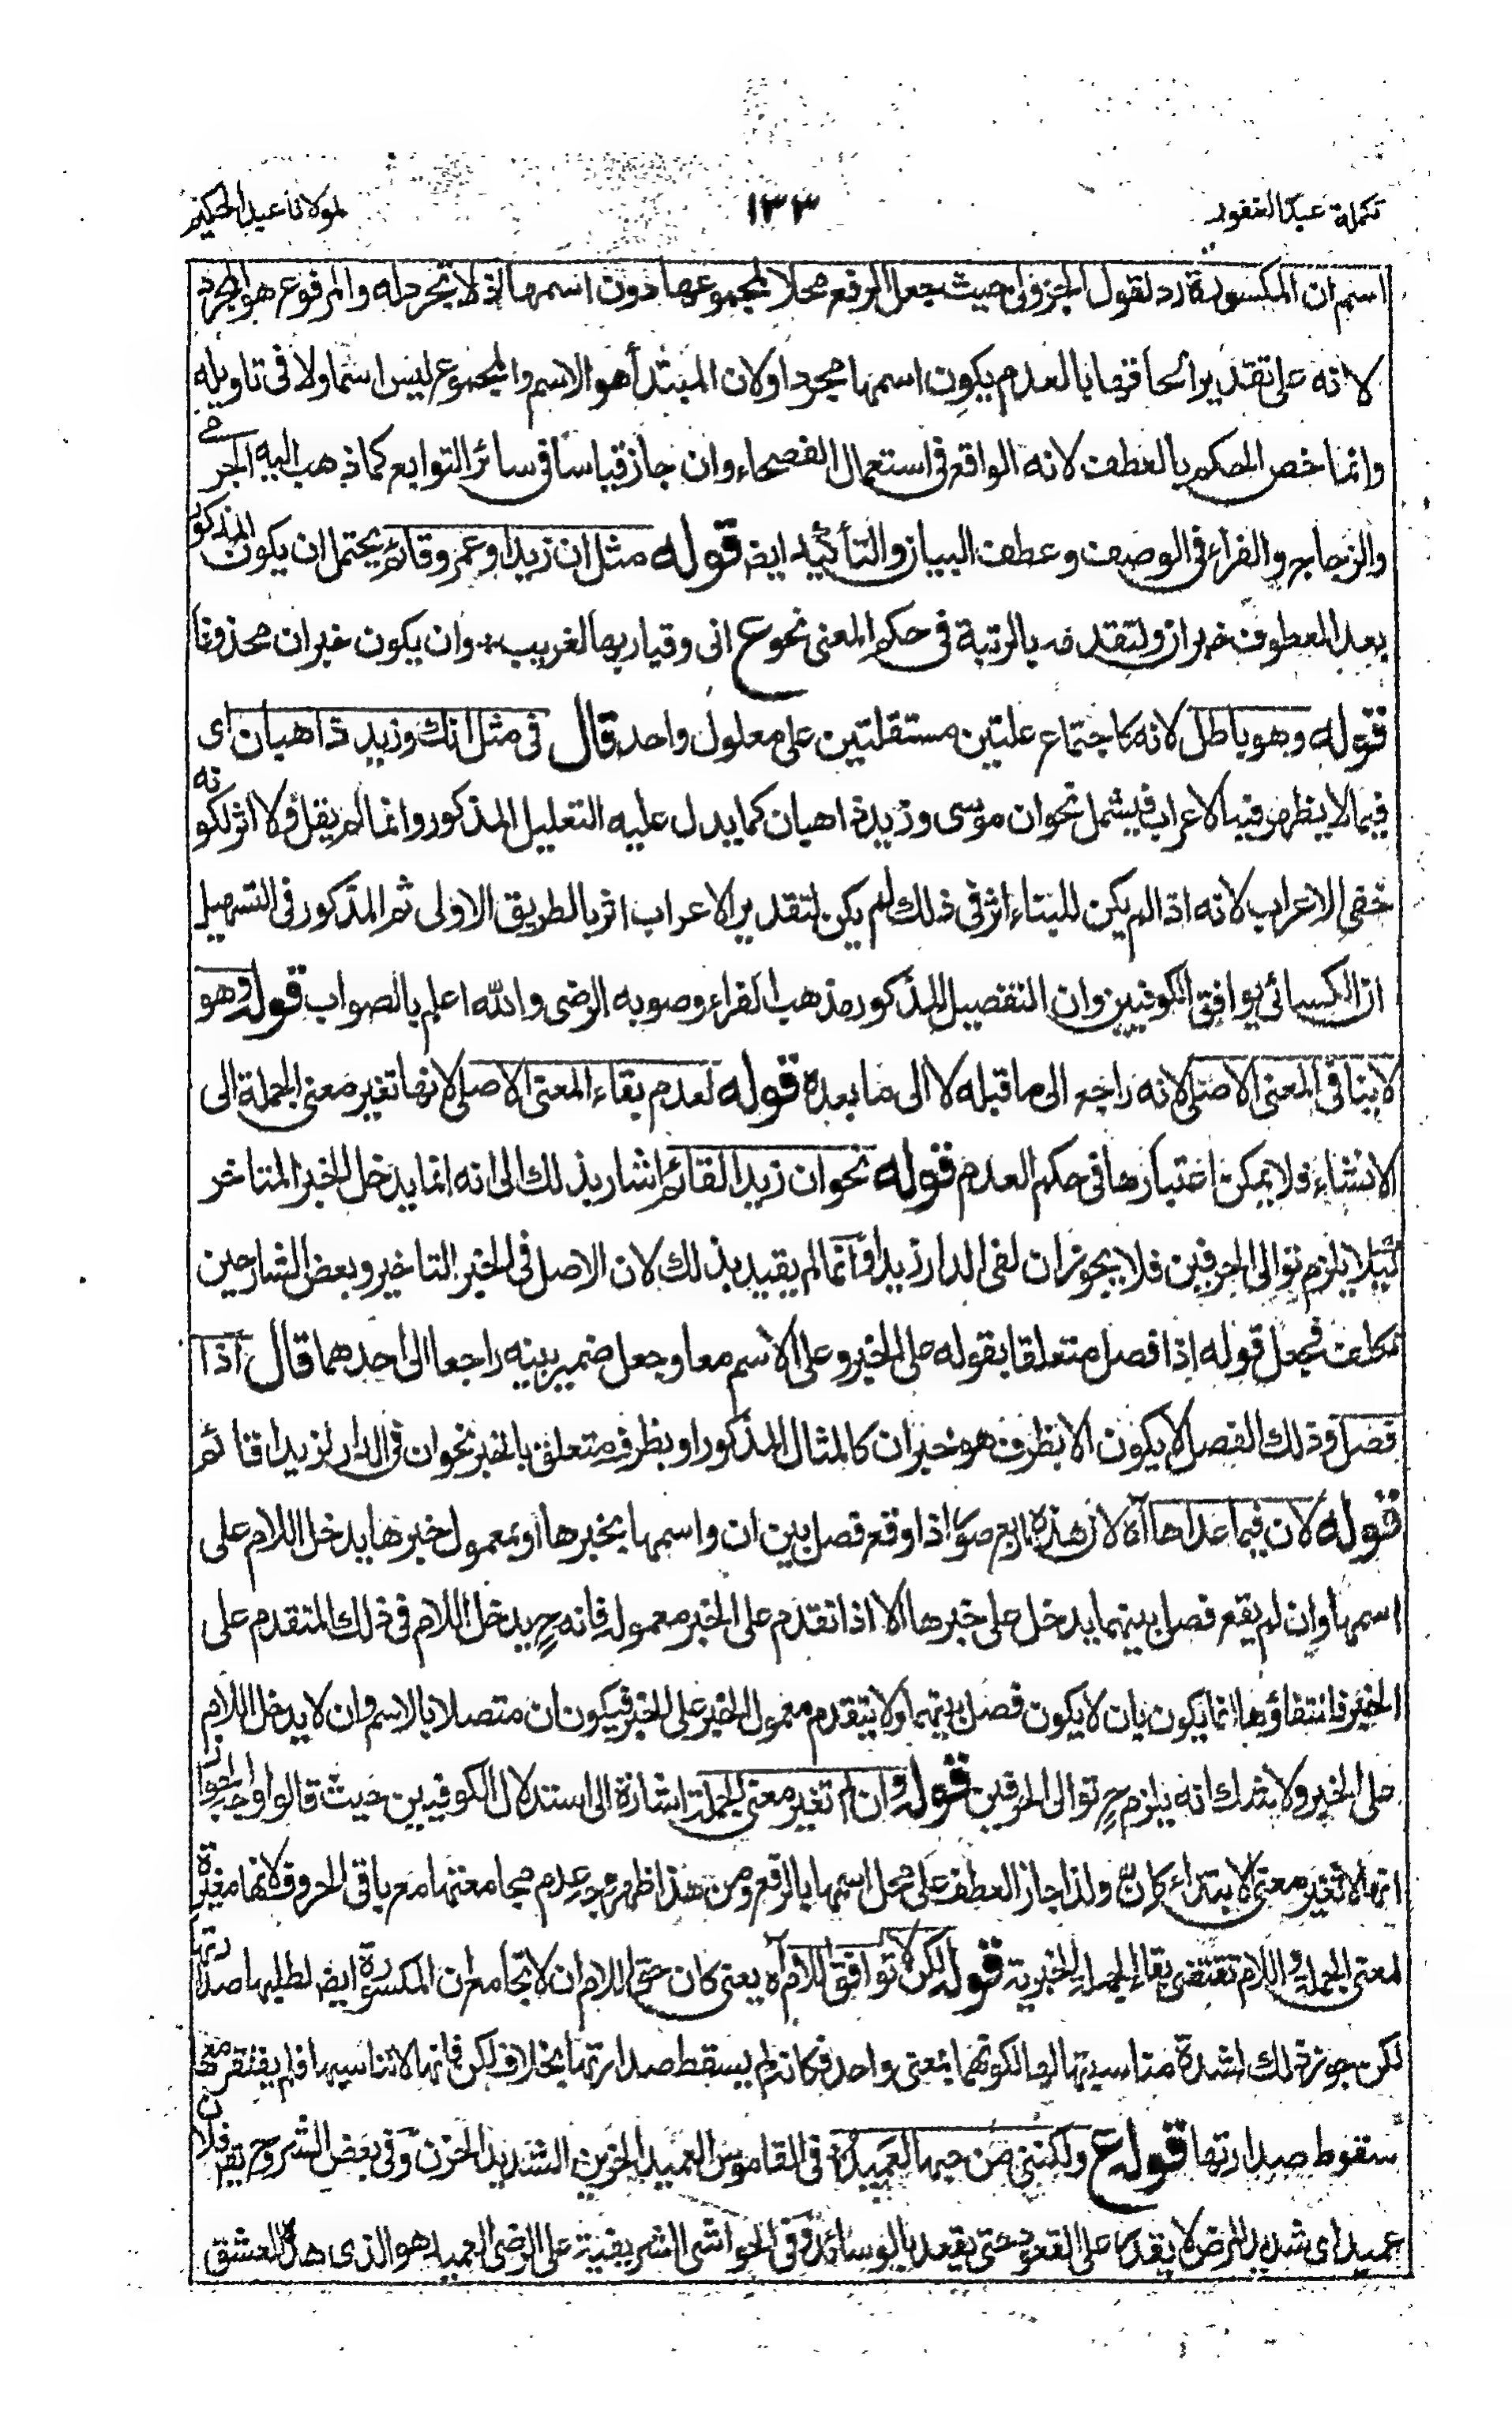 تكملة عبد الغفور
١٣٣
لمولانا عبد الحكيم
اسم ان المكسورة رد لقول الجزولى حيث جعل الرفع محلا لمجموعها دون اسمها اذ لا تجرد له والمرفوع هو المجرد
لانه على تقدير الحاقها بالعدم يكون اسمها مجردا ولان المبتدأ هو الاسم والمجموع ليس اسما ولا فى تاويله
وانما خص الحكم بالعطف لانه الواقع فى استعمال الفصحاء وان جاز قياسا فى سائر التوابع كما ذهب اليه الجرمى
والزجاج والفراء فى الوصف وعطف البيان والتأكيد ايضا قوله مثل ان زيدا وعمرو قائم يحتمل ان يكون المذكور
بعد المعطوف خبر ان ولتقدمه بالرتبة فى حكم المعنى نحو ع انى وقيار بها لغريب ٭ وان يكون خبر ان محذوفا
قوله وهو باطل لانه كاجتماع علتين مستقلتين على معلول واحد قال فى مثل انك وزيد ذاهبان اى
فيما لا يظهر فيه الاعراب فيشمل نحو ان موسى وزيد ذاهبان كما يدل عليه التعليل المذكور وانما لم يقل ولا اثر لكونه
خفى الاعراب لانه اذا لم يكن للبناء اثر فى ذلك لم يكن لتقدير الاعراب اثر بالطريق الاولى ثم المذكور فى التسهيل
ان الكسائى يوافق الكوفيين وان التفصيل المذكور مذهب الفراء وصوبه الرضى والله اعلم بالصواب قوله وهو
لا ينافى المعنى الاصلى لانه راجع الى ما قبله لا الى ما بعده قوله لعدم بقاء المعنى الاصلى لانها تغير معنى الجملة الى
الانشاء ولا يمكن اعتبارها فى حكم العدم قوله نحو ان زيدا لقائم اشار بذلك الى انه انما يدخل الخبر المتاخر
لئلا يلزم توالى الحرفين فلا يجوز ان لفى الدار زيدا وانما لم يقيد بذلك لان الاصل فى الخبر التاخير وبعض الشارحين
تكلف فجعل قوله اذا فصل متعلقا بقوله على الخبر وعلى الاسم معا وجعل ضمير بينه راجعا الى احدهما قال اذا
فصل وذلك الفصل لا يكون الا بظرف هو خبر ان كالمثال المذكور او بظرف متعلق بالخبر نحو ان فى الدار لزيدا قائم
قوله لان فيما عداها اه لان هذه اربع صور اذا وقع فصل بين ان واسمها بخبرها او بمعمول خبرها يدخل اللام على
اسمها وان لم يقع فصل بينهما يدخل على خبرها الا اذا تقدم على الخبر معموله فانه ح يدخل اللام فى ذلك المتقدم على
الخبر فانتفاؤها انما يكون بان لا يكون فصل بينهما ولا يتقدم معمول الخبر على الخبر فيكون ان متصلا بالاسم وان لا يدخل اللام
على الخبر ولا شك انه يلزم ح توالى الحرفين قوله وان لم تغير معنى الجملة اشارة الى استدلال الكوفيين حيث قالوا
انها لا تغير معنى الابتداء كان ولذا جاز العطف على محل اسمها بالرفع ومن هذا ظهر وجه عدم مجامعتها مع باقى الحروف لانها مغيرة
لمعنى الجملة واللام تقتضى بقاء الجملة الخبرية قوله لكن لا توافق اللام اه يعنى كان حق اللام ان لا تجامع ان المكسورة ايضا لطلبها صدارتها
لكن جوز ذلك لشدة مناسبتها لها لكونهما بمعنى واحد فكانه لم يسقط صدارتها بخلاف لكن فانها لا تناسبها فلم يغتفر معها
سقوط صدارتها قوله ع ولكننى من حبها لعميد فى القاموس العميد الحزين الشديد الحزن وفى بعض الشروح يقال فلان
عميد اى شديد المرض لا يقدر على القعود حتى يقعد بالوسائد وفى الحواشى الشريفية على الرضى العميد هو الذى هده العشق